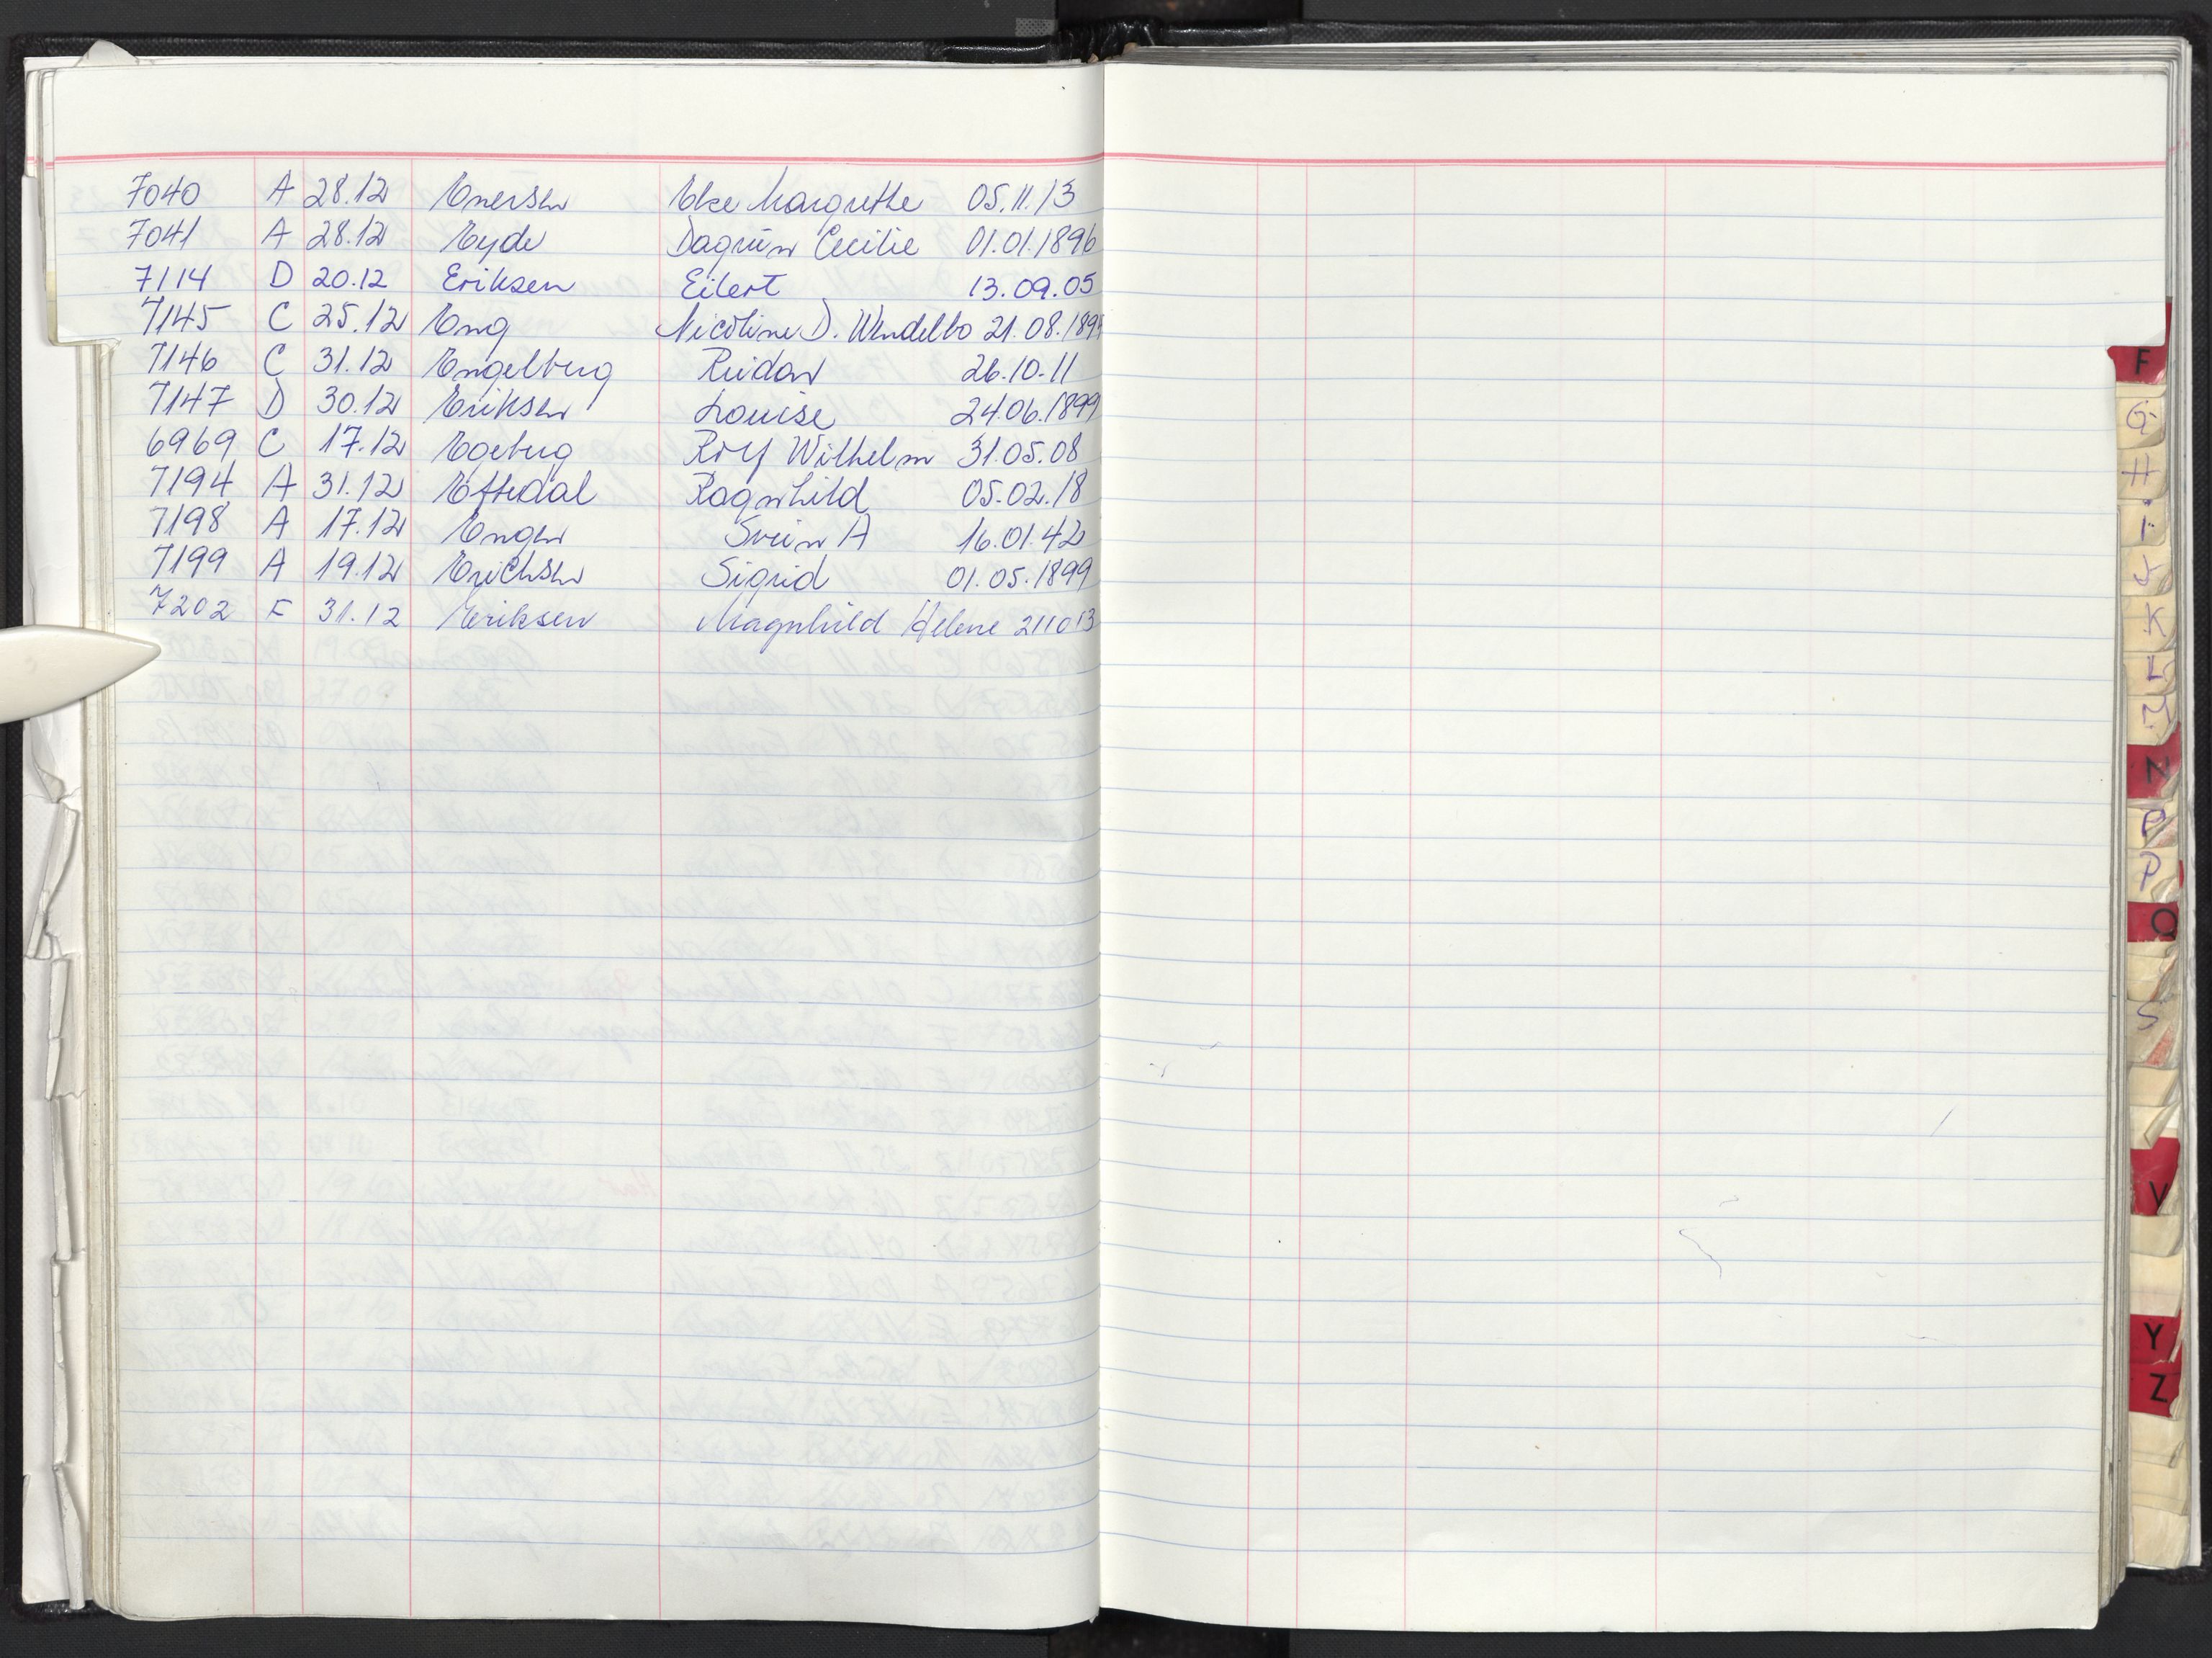 7040 A 28.12 Enersen Else Margrethe 05.11.13
7041 A 28.12 Eyde Dagrun Cecilie 01.01.1896
7114 D 20.12 Eriksen Eilert 13.09.05
7145 C 25.12 Eng Nicoline D. Wendelbo 21.08.189
7146 C 31.12 Engelberg Reidar 26.10.11
7147 D 30.12 Eriksen Louise 24.06.1899
6969 C 17.12 Egeberg Rolf Wilhelm 31.05.08
7194 A 31.12 Eftedal Ragnhild 05.02.18
7198 A 17.12 Engen Svein A 16.01.42
7199 A 19.12 Erichsen Sigrid 01.05.1899
7202 F 31.12 Eriksen Magnhild Helene 211013
F
G
H
I
J
K
L
M
N
P
Q
S
V
Y
Z